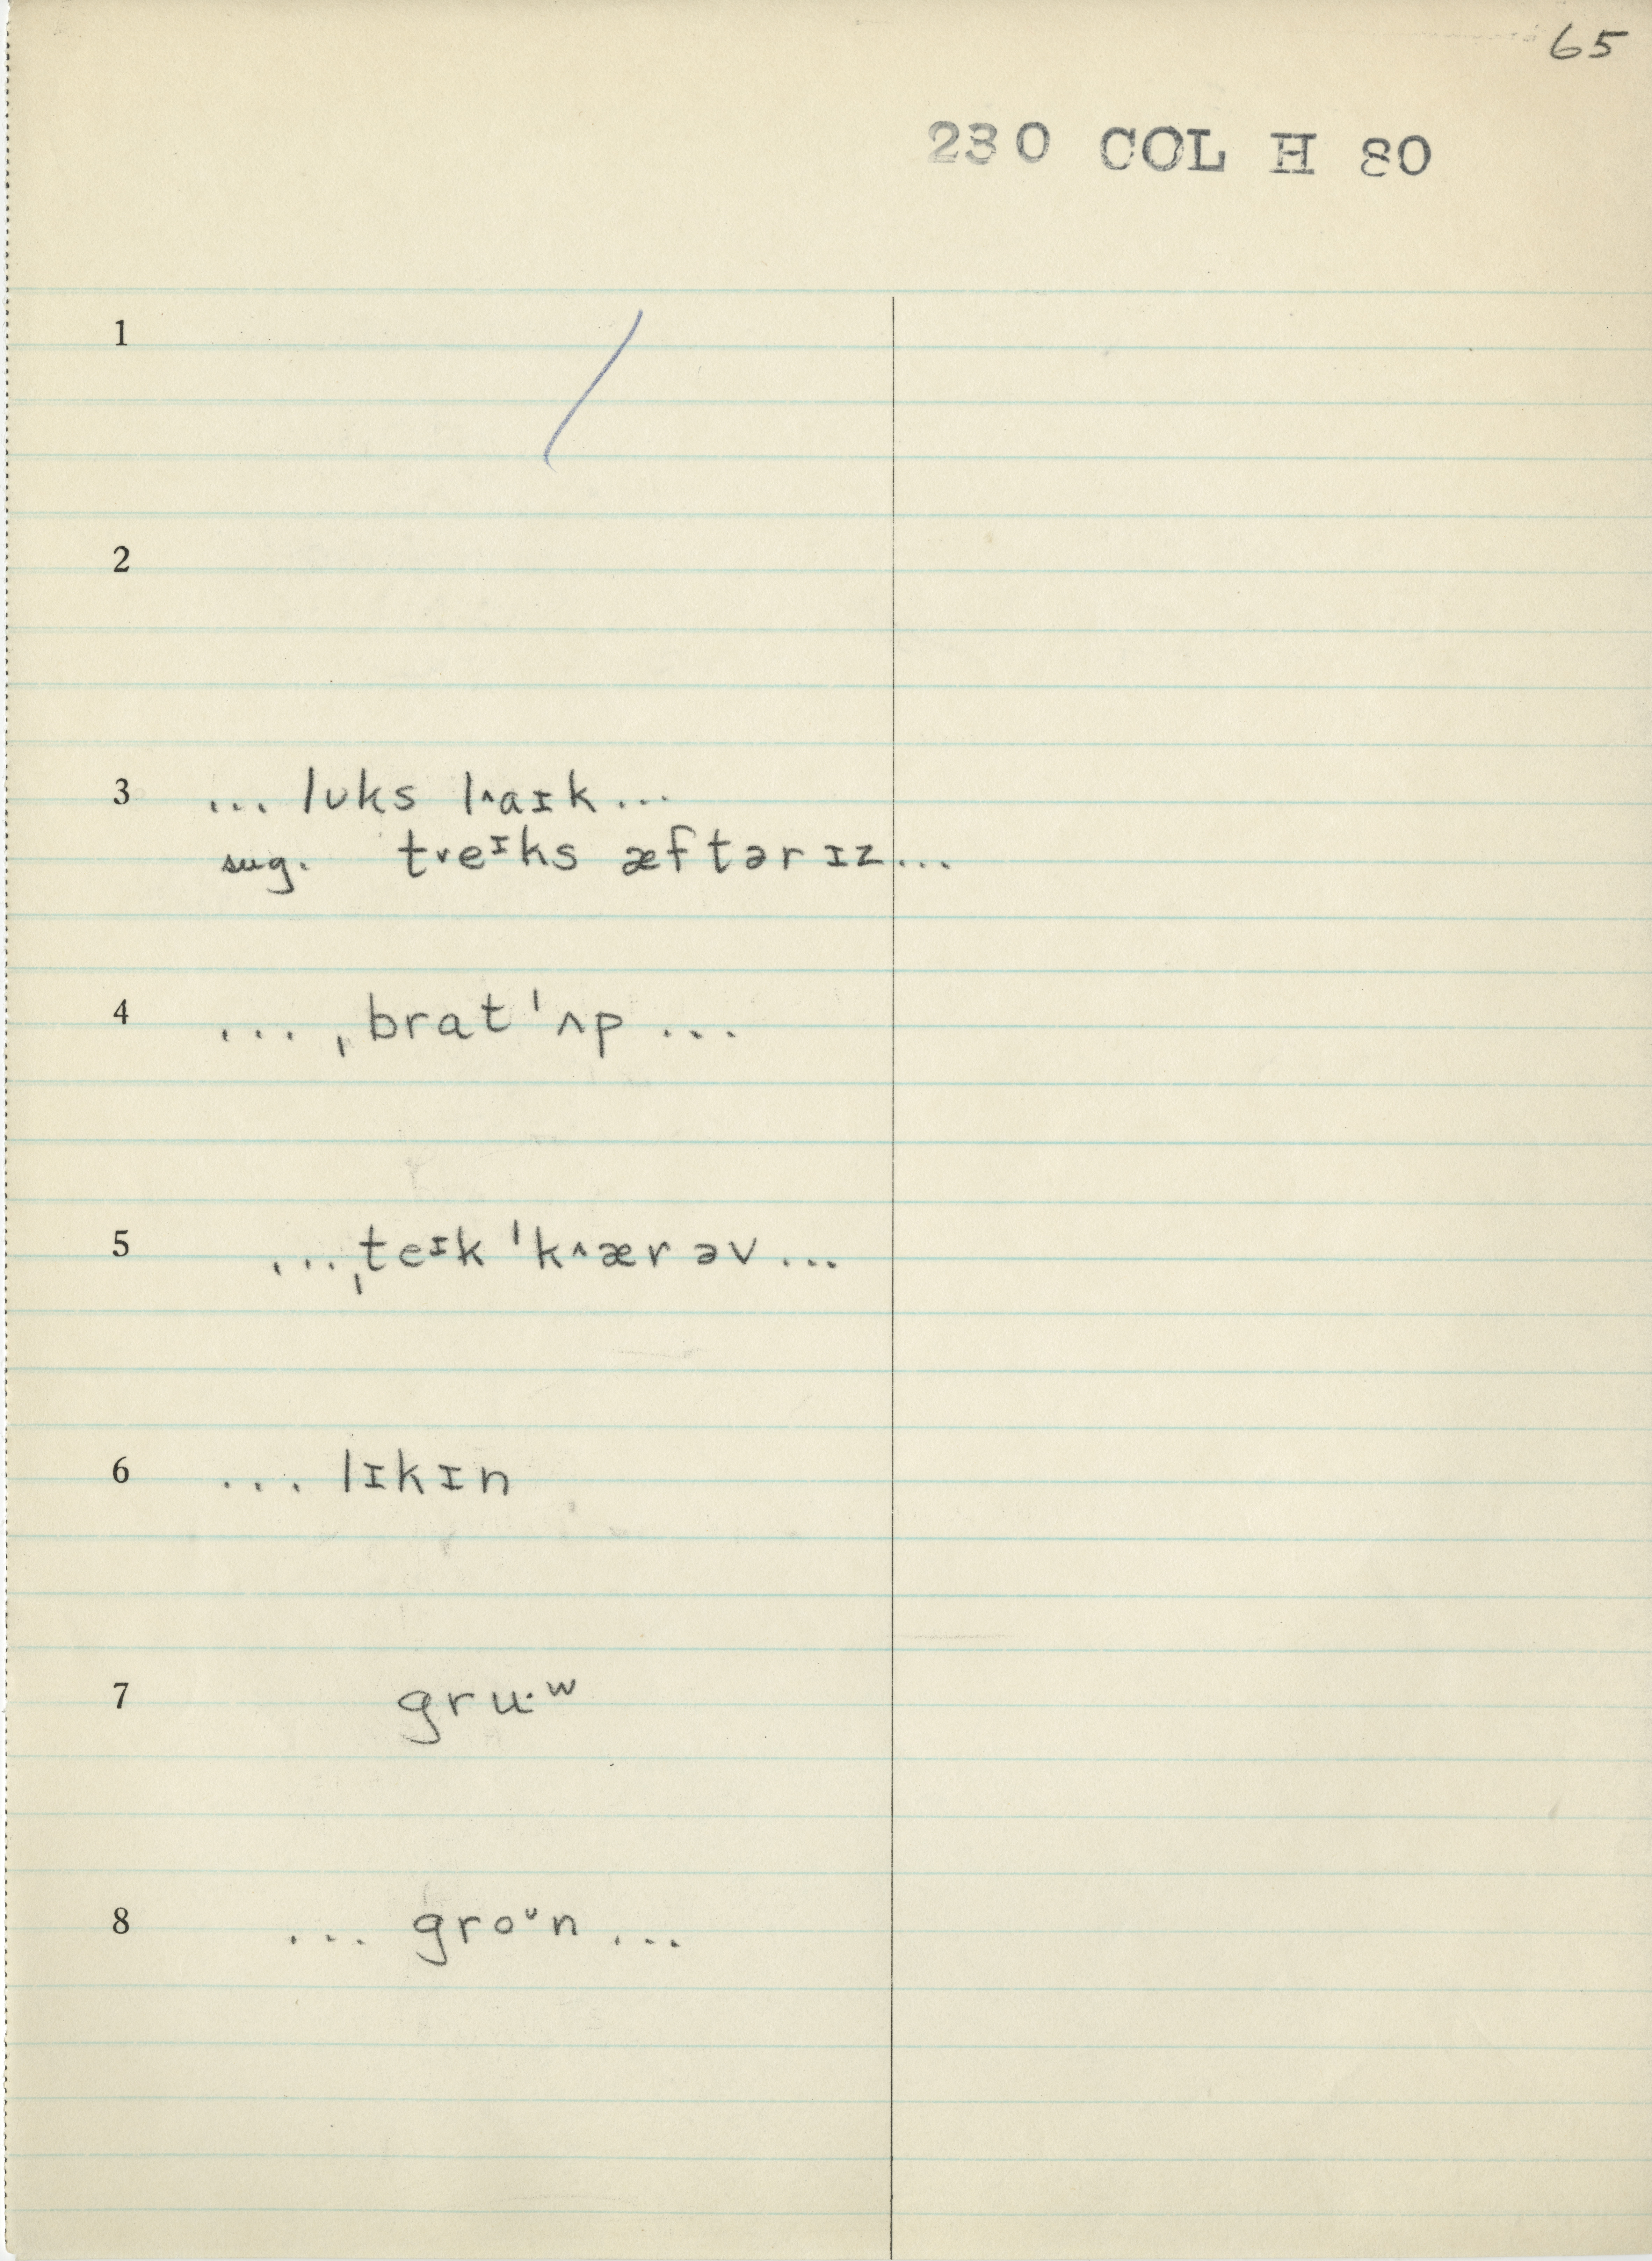 65
230 COL H 80
1
2
3 ... lʊks l˄aɪk ...
sug. t˅eᶦks æftər ɪz ...
4 ... ˌbrat ˈʌp ...
5 ... ˌteᶦk ˈk˄ær əv ...
6 ... lɪkɪn
7 gru·ʷ
8 ... groᶷn ...